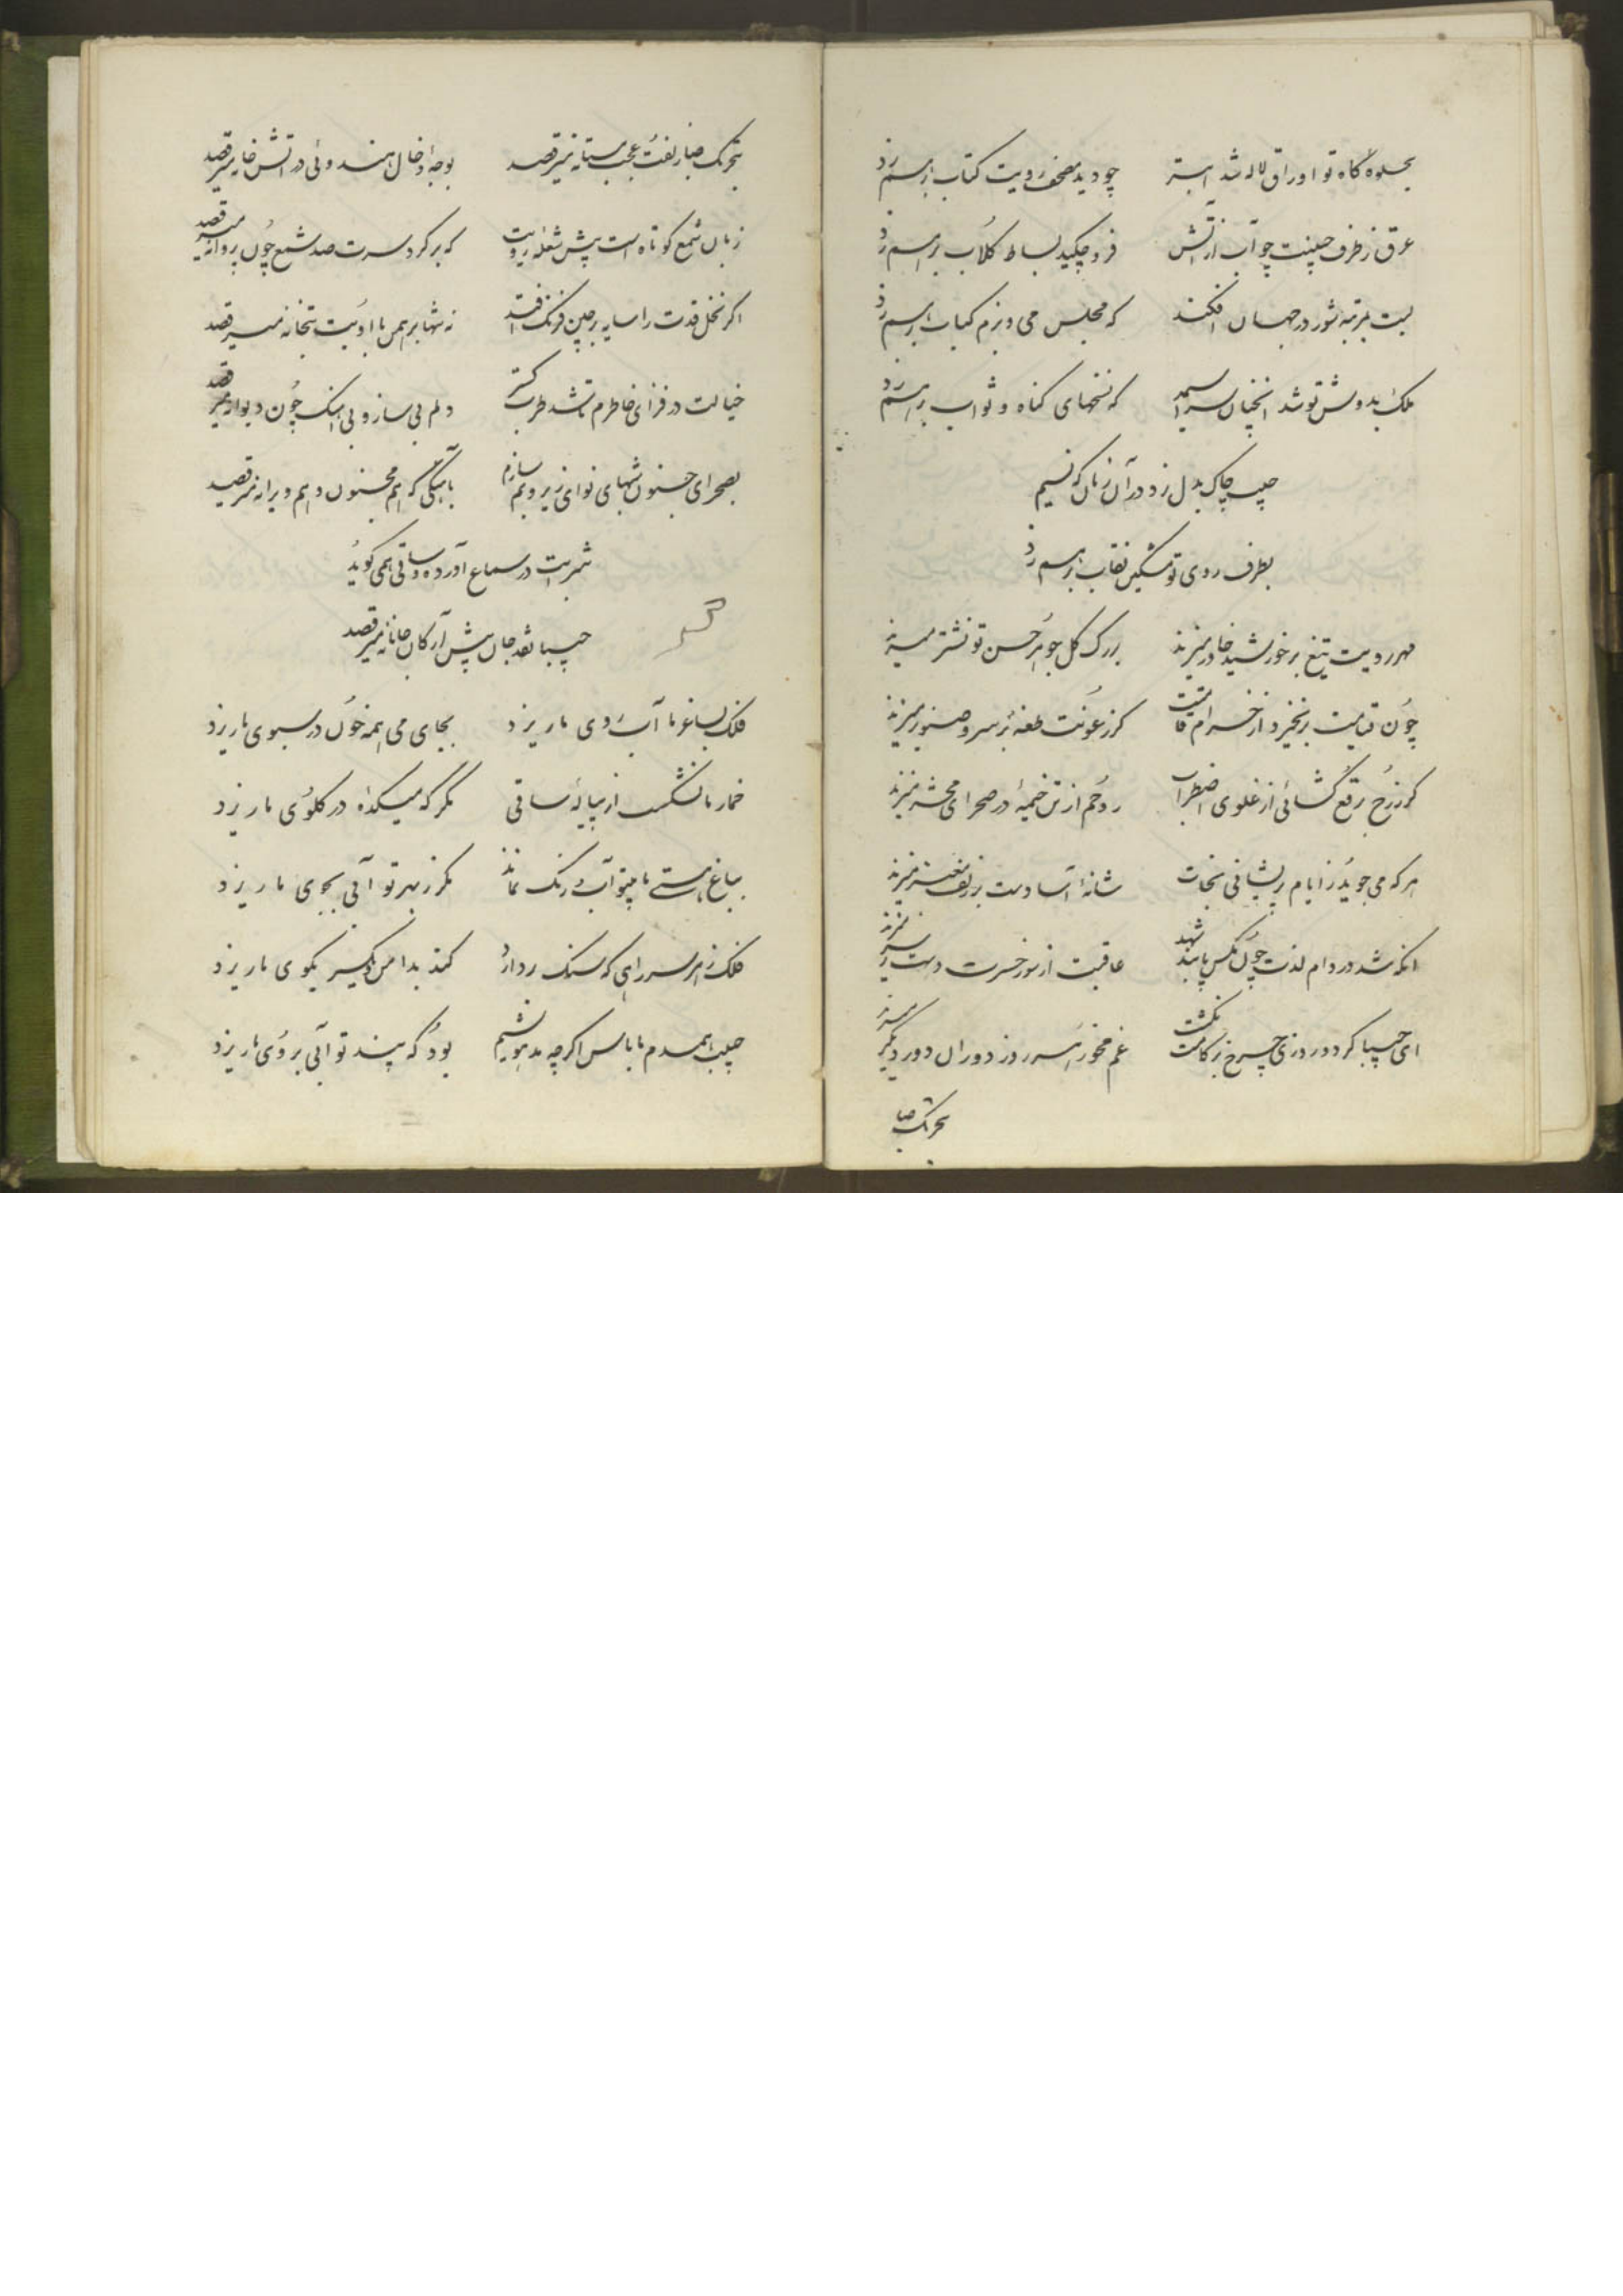 بجلوه گاه تو اوراق لاله شد ابتر چو دید مصحف رویت کتاب برهم زد
عرق ز طرف جبینت چو آب از آتش فرو چکید بساط گلاب برهم زد
لبت بمرتبه شور در جهان افکند که مجلس می و بزم کباب برهم زد
ملک بدوشش تو شد آنچنان سراسیمه که نسخهای کناه و ثواب برهم زد
حسیب چاک بدل زد در آن زمان که نسیم
بطرف روی تو مشکین نقاب برهم زد
مهر رویت تیغ بر خورشید خاور میزند بر رک کل جوهر حسن تو نشتر میزند
چون قیامت برنخیزد از خرام قامتت کز رعونت طعنه بر سرو صنوبر میزند
کر ز رخ برقع کشائی از غلوی اضطراب روحم از تن خیمه در صحرای محشر میزند
هر که می جوید ز ایام پریشانی نجات شانه آسا دست بر زلف معنبر میزند
انکه شد در دام لذت چون مکس پابند شهد عاقبت از سوز حسرت دست بر سر میزند
ای حسیبا کر دو روزی چرخ بر کامت نکشت غم مخور هر روز دوران دور دیکر میزند
بتحریک صبا
بتحریک صبا زلفت عجب مستانه میرقصد بوجه او خال هندوئی در آتش خانه میرقصد
زبان شمع کوتاه است پیش شعله رویت که بر کرد سرت صد شمع چون پروانه میرقصد
اکر نخل قدت را سایه بر چین فرنک افتد نه تنها برهمن با او بت بتخانه میرقصد
خیالت در فزای خاطرم تا شد طرب کستر دلم بی ساز و بی اهنک چون دیوانه میرقصد
بصحرای جنون شبهای نوای زیر و بم سازم باهنکی که هم مجنون و هم ویرانه میرقصد
شربت در سماع آورده و ساقی همی کوید
حسیبا نقد جان پیش آر کان جانانه میرقصد
فلک بساغر ما آب روی ما ریزد بجای می همه خون در سبوی ما ریزد
خمار ما نشکست از پیاله ساقی مکر که میکده در کلوی ما ریزد
بباغ هستی ما بیتو آب و رنک نماند مکر ز مهر تو آبی بجوی ما ریزد
فلک ز هر سر راهی که سنک بردارد کند بدامن و یکسر بکوی ما ریزد
حسیب همدم ما باش اکرچه مدهوشیم بود که پند تو آبی بروی ما ریزد